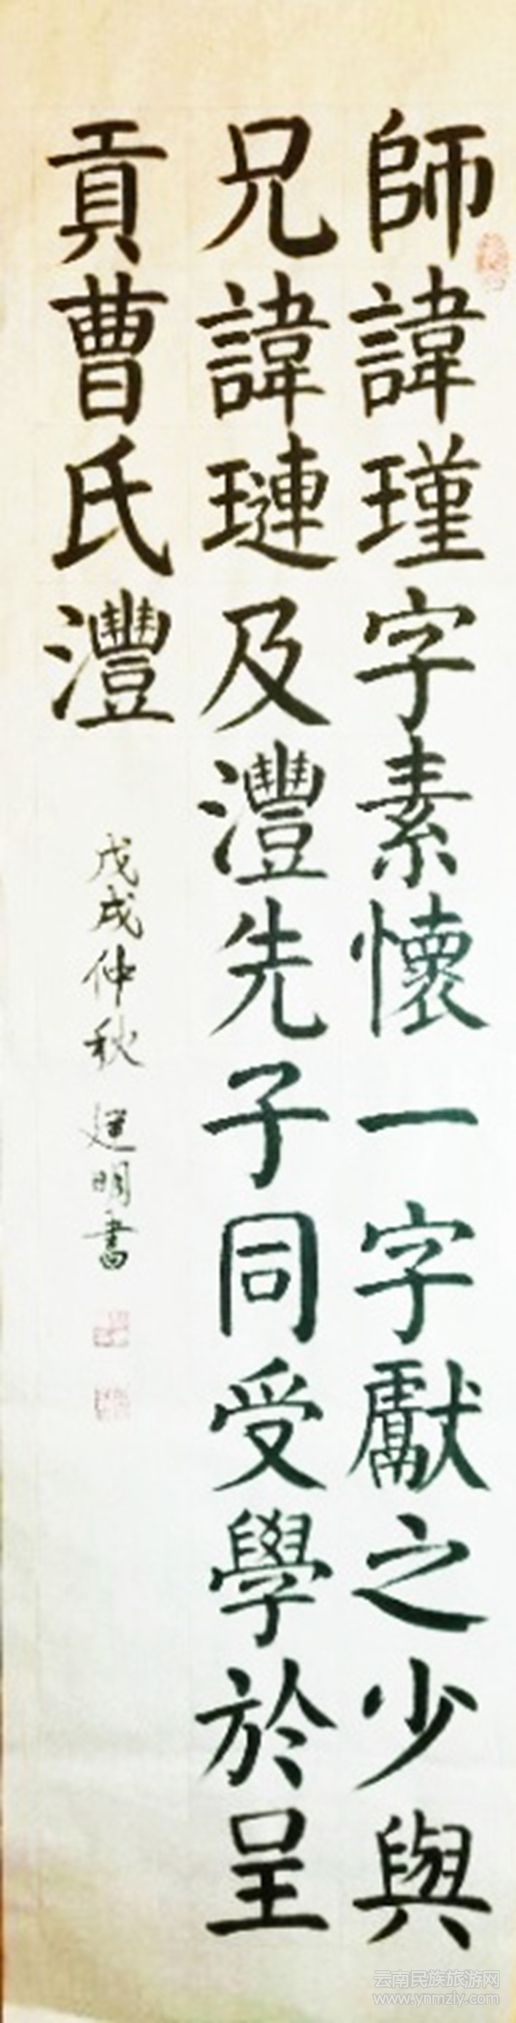 師諱瑾字素懷一字獻之少與
兄諱璉及灃先子同受學於呈
貢曹氏灃
戊戌仲秋 建明書
云南民族旅游网
www.ynmzly.com